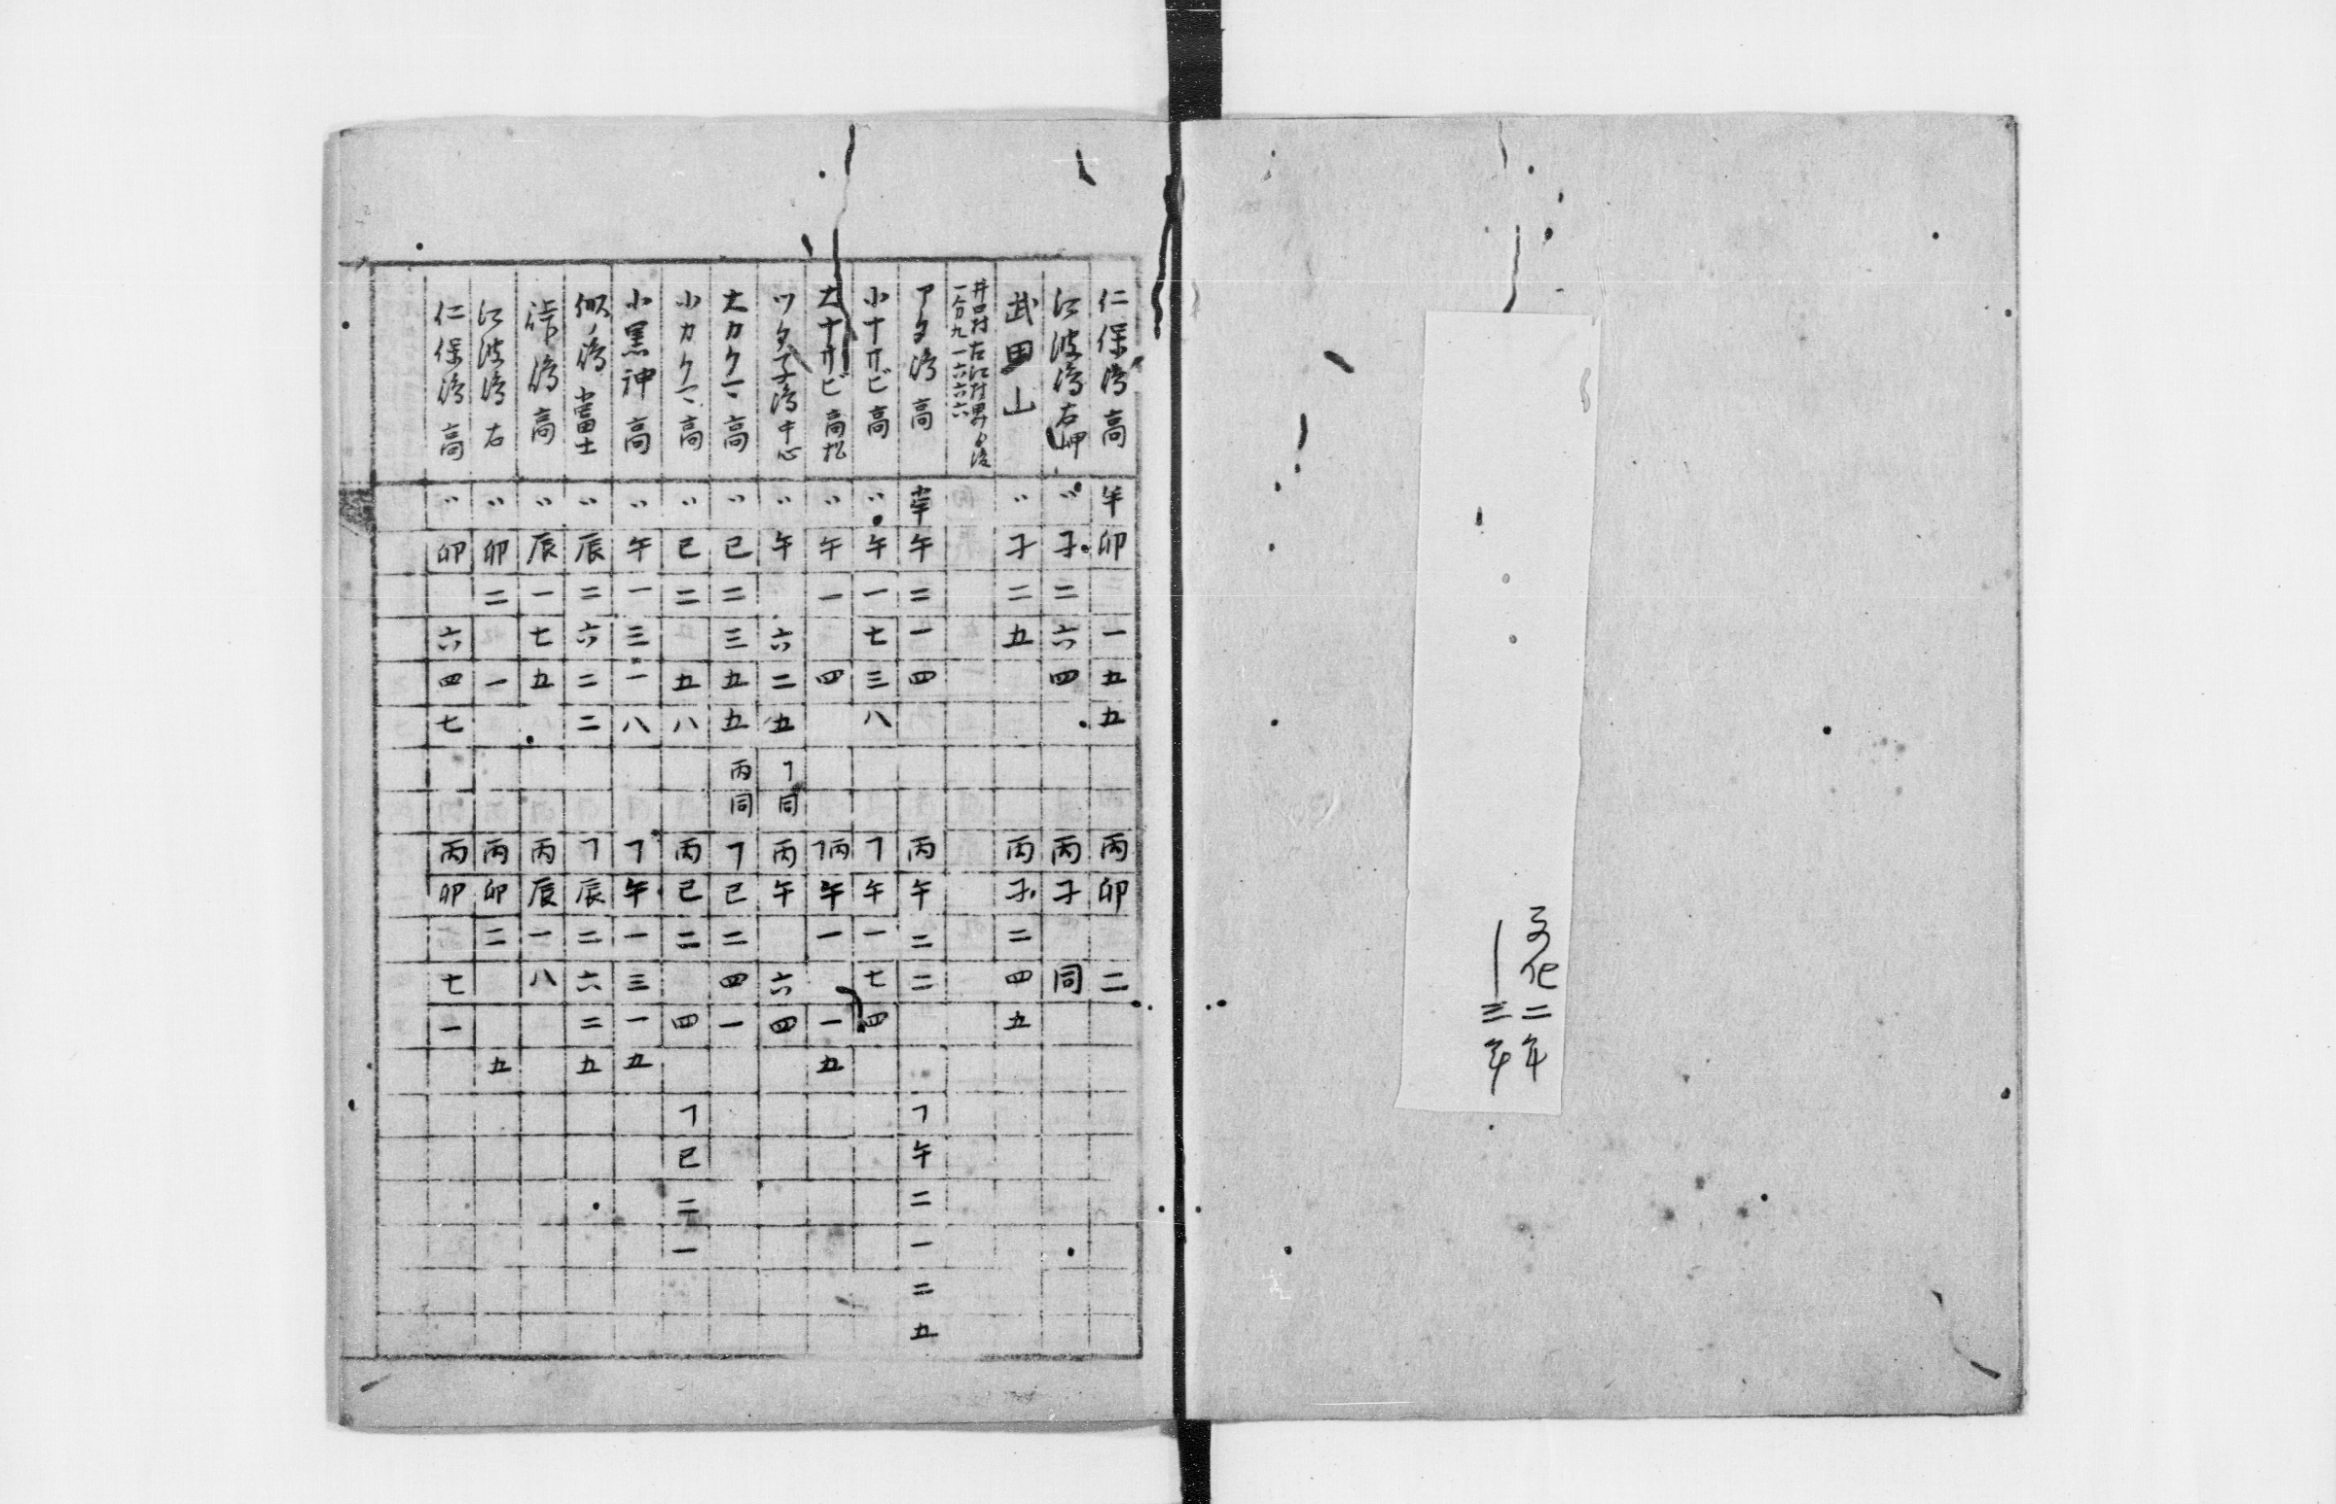 文化二年
一三年
仁保島高 半卯 一五五 丙卯 二
江波島右岬 〃子二六四 丙子 同
武田山 〃子二五 丙子二四五
井口村 古江村界ヨリ
一分九一六六六
アタ島高 半午二一四 丙午二二 ㇕午二一二五
小ナサビ高 〃午一七三八 ㇕午一七四
大ナサビ高松 〃午一 四 ㇕丙午一 一五
ツタ子島中心 〃午 六二五 ㇕同 丙午 六四
大カクマ高 〃巳二三五五 丙同 ㇕巳二四一
小カクマ高 〃巳二 五八 丙巳二 四 ㇕巳二一
小黒神高 〃午一三一八 ㇕午一三一五
似ノ島小富士 〃辰二六二二 ㇕辰二六二五
峠島高 〃辰一七五 丙辰一八
江波島右 〃卯二 一 丙卯二 五
仁保島高 〃卯 六四七 丙卯 七一